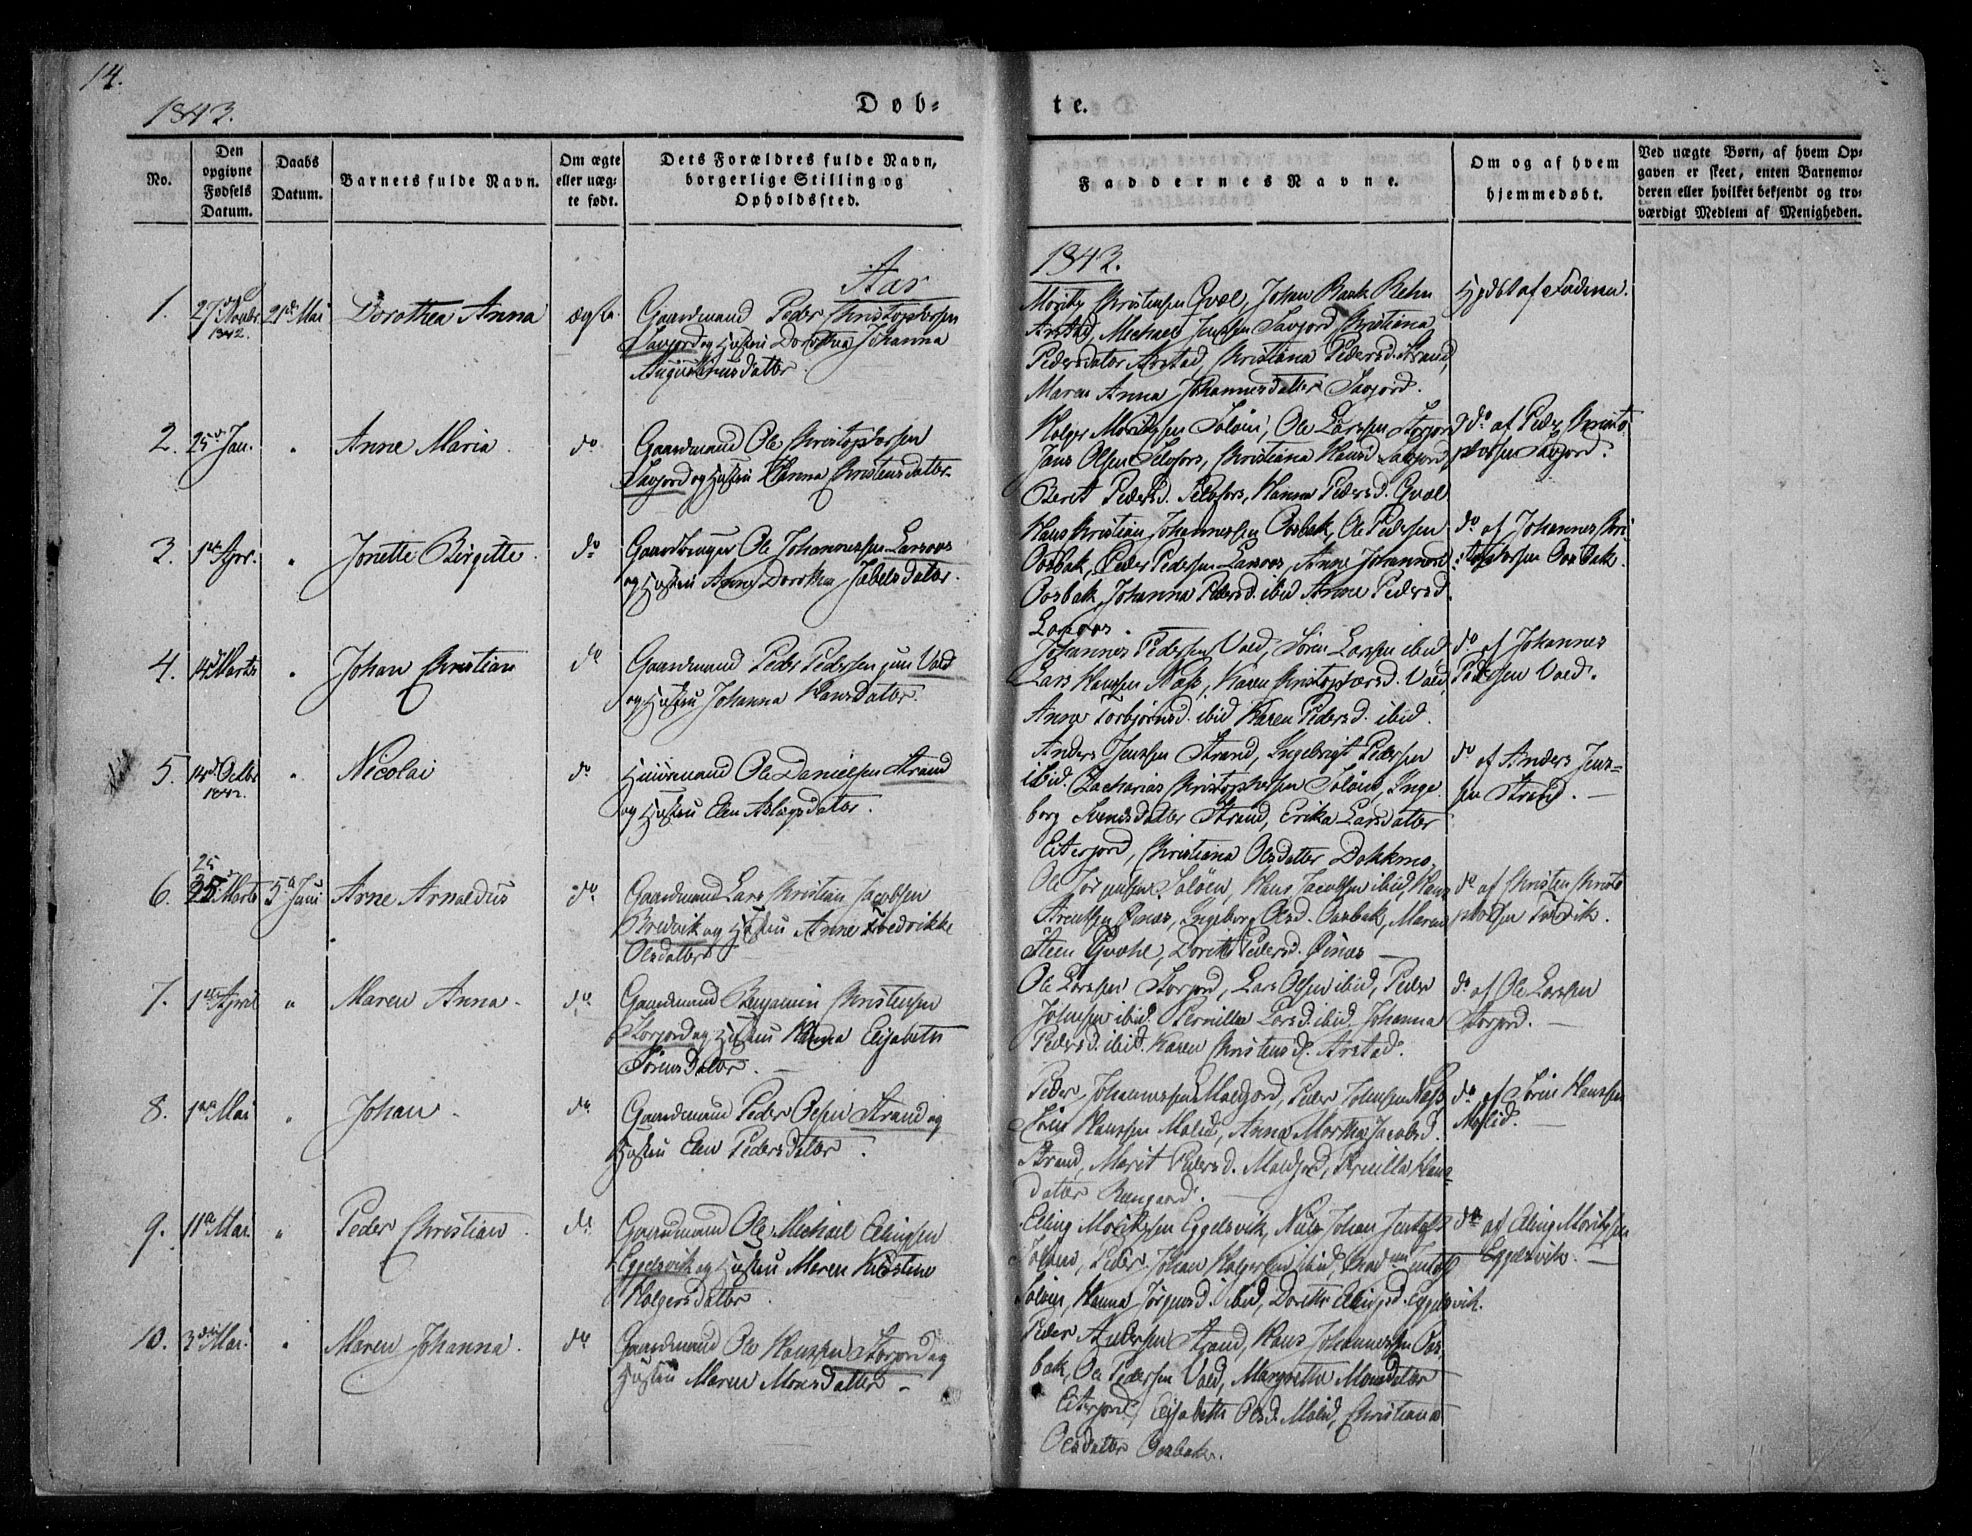 14.
1843.
Døb-
te.
No.
Den
opgivne
Fødsels
Datum.
Daabs
Datum.
Barnets fulde Navn.
Om ægte
eller uæg-
te født.
Dets Forældres fulde Navn,
borgerlige Stilling og
Opholdssted.
Faddernes Navne.
Om og af hvem
hjemmedøbt.
Ved uægte Børn, af hvem Op-
gaven er skeet, enten Barnemo-
deren eller hvilket bekjendt og tro-
værdigt Medlem af Menigheden.
Aar
1843.
1. 27de Novbr 1842. 21de Mai Dorothea Anna ægte.
Gaardmand Peder Christophersen
Savjord og Hustru Dorothea Johanna
Augustinusdatter.
Moritz Christensen Qvæl, Johan Bank Behn
Arstad, Michael Jenssen Savjord, Christiana
Pedersdatter Arstad, Christiana Pedersd. Strand,
Maren Anna Johannesdatter Savjord.
Hjdbt af Faderen.
2. 25de Jan. " Anne Maria do
Gaardmand Ole Christophersen
Savjord og Hustru Hanna Christensdatter.
Holger Moritzsen Soløen, Ole Larssen Storjord
Jens Olsen Selfors, Christiana Hansd. Savjord,
Berit Pedersd. Selfors, Hanna Pedersd. Qvæl
do af Peder Christo
phersen Savjord.
3. 1ste Apr. " Jonette Birgitte. do
Gaardbruger Ole Johannessen Larsoos
og Hustru Anne Dorothea Jabelsdatter.
Hans Christian Johannessen Oosbak, Ole Pedersen
Oosbak, Peder Pedersen Larsoos, Anne Johannesd.
Oosbak, Johanna Pedersd. ibid Anne Pedersd.
Larsoos.
do af Johannes Chri-
stophersen Oosbak.
4. 14de Marts " Johan Christian do
Gaardmand Peder Pedersen jun Vold
og Hustru Johanna Hansdatter.
Johannes Pedersen Vold, Søren Larssen ibid
Lars Hanssen Næss, Karen Christophersd. Vold,
Anne Torbjørnsd. ibid Karen Pedersd. ibid.
do af Johannes
Pedersen Vold.
5. 14de Octbr 1842. " Nicolai do
Huusmand Ole Danielsen Strand
og Hustru Elen Aslagsdatter.
Anders Jenssen Strand, Ingebrigt Pedersen
ibid. Zacharias Christophersen Soløen, Inge
borg Svendsdatter Strand, Erika Larsdatter
Eiterjord, Christiana Olsdatter Dokkmo.
do af Anders Jens-
sen Strand.
6. 25 Marts 5te Juni Arne Arnoldus do
Gaardmand Lars Christian Jacobsen
Bredvik og Hustru Anne Fredrikke
Olsdatter
Ole Jørgensen Soløen, Hans Jacobsen ibid, Hans
Arentsen Øinæs, Ingeborg Olsd. Oosbak, Maren
Steen Qvæhl, Dorothea Pedersd. Øinæs
do af Christen Christo
phersen.
7. 1ste April " Maren Anna. do
Gaardmand Benjamin Christensen
Storjord og Hustru Hanna Elisabeth
Sørensdatter.
Ole Larssen Storjord, Lars Olsen ibid, Peder
Johnsen ibid. Pernilla Larsd. ibid Johanna
Pedersd. ibid. Karen Christensd. Arstad.
do af Ole Larssen
Storjord.
8. 1ste Mai " Johan. do
Gaardmand Peder Olsen Strand og
Hustru Elen Pedersdatter.
Peder Johannessen Moldjord, Peder Johnsen Næss
Søren Hanssen Molid, Anna Martha Jacobsd.
Strand, Marit Pedersd. Moldjord, Pernilla Hans-
datter.
do af Søren Hanssen
Molid.
9. 11te Mai. " Peder Christian. do.
Gaardmand Ole Michael Elingsen
Eggelsvik og Hustru Maren Kirstine
Holgersdatter
Eling Moritzsen Eggelsvik, Niels Johan Jentoft
Soløen, Peder Johan Holgersen ibid, Jentoft
Soløen, Hanna Jørgensd. ibid, Dorthe Elingsd. Eggelsvik.
do af Eling Moritzsen
Eggelsvik.
10. 3die Mai. " Maren Johanna. do
Gaardmand Ole Hanssen Storjord og
Hustru Maren Monsdatter.
Peder Andersen Strand, Hans Johannessen Oos-
bak, Ole Pedersen Vold, Margrethe Monsdatter
Eiterjord, Elisabeth Olsd. Molid, Christiana
Olsdatter Oosbak.